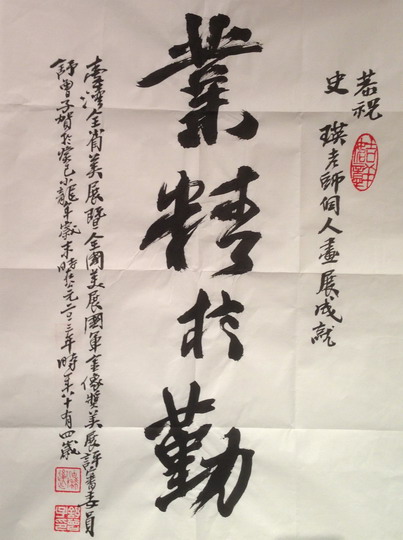 恭祝
史瑛老師個人畫展成就
業精於勤
臺灣全省美展暨全國美展國軍金像獎美展評審委員
曾子賀於癸巳小龍年歲末時於元二〇一三年時年八十有四歲